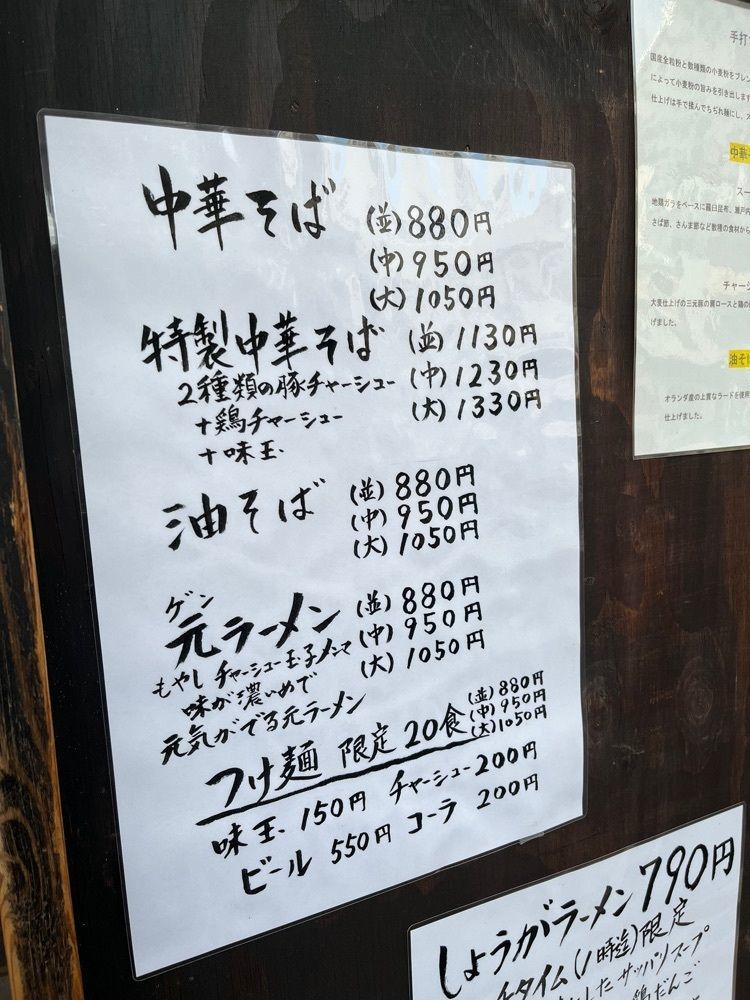 中華そば (並)880円
(中)950円
(大)1050円
特製中華そば (並)1130円
2種類の豚チャーシュー (中)1230円
+鶏チャーシュー (大)1330円
+味玉
油そば (並)880円
(中)950円
(大)1050円
ゲン
元ラーメン (並)880円
もやしチャーシュー玉子メンマ (中)950円
味が濃いめで (大)1050円
元気がでる元ラーメン
つけ麺 限定20食 (並)880円
(中)950円
(大)1050円
味玉 150円 チャーシュー 200円
ビール 550円 コーラ 200円
手打
国産全粒粉と数種類の小麦粉をブレン
によって小麦粉の旨みを引き出します
仕上げは手で揉んでちぢれ麺にし、ス
中華
スー
地鶏ガラをベースに羅臼昆布、瀬戸内
さば節、さんま節など数種の食材から
チャーシ
大麦仕上げの三元豚の肩ロースと鶏の
げました。
油そば
オランダ産の上質なラードを使用
仕上げました。
しょうがラーメン 790円
チタイム(1時迄)限定
したサッパリスープ
鶏だんご